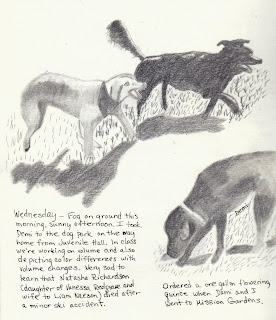 Demi
Wednesday - Fog on ground this
morning, sunny afternoon. I took
Demi to the dog park on the way
home from Juvenile Hall. In class
we're working on volume and also
depicting color differences with
volume changes. Very sad to
learn that Natasha Richardson
(daughter of Vanessa Redgrave and
wife to Liam Neeson) died after
a minor ski accident.
Ordered a one gallon flowering
quince when Demi and I
went to Mission Gardens.